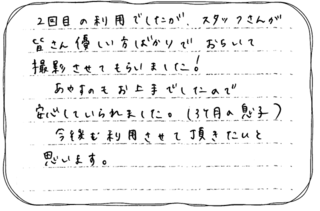 2回目の利用でしたが、スタッフさんが
皆さん優しい方ばかりで おちついて
撮影させてもらいました！
あやすのもお上手でしたので
安心していられました。(3ヶ月の息子)
今後も利用させて頂きたいと
思います。